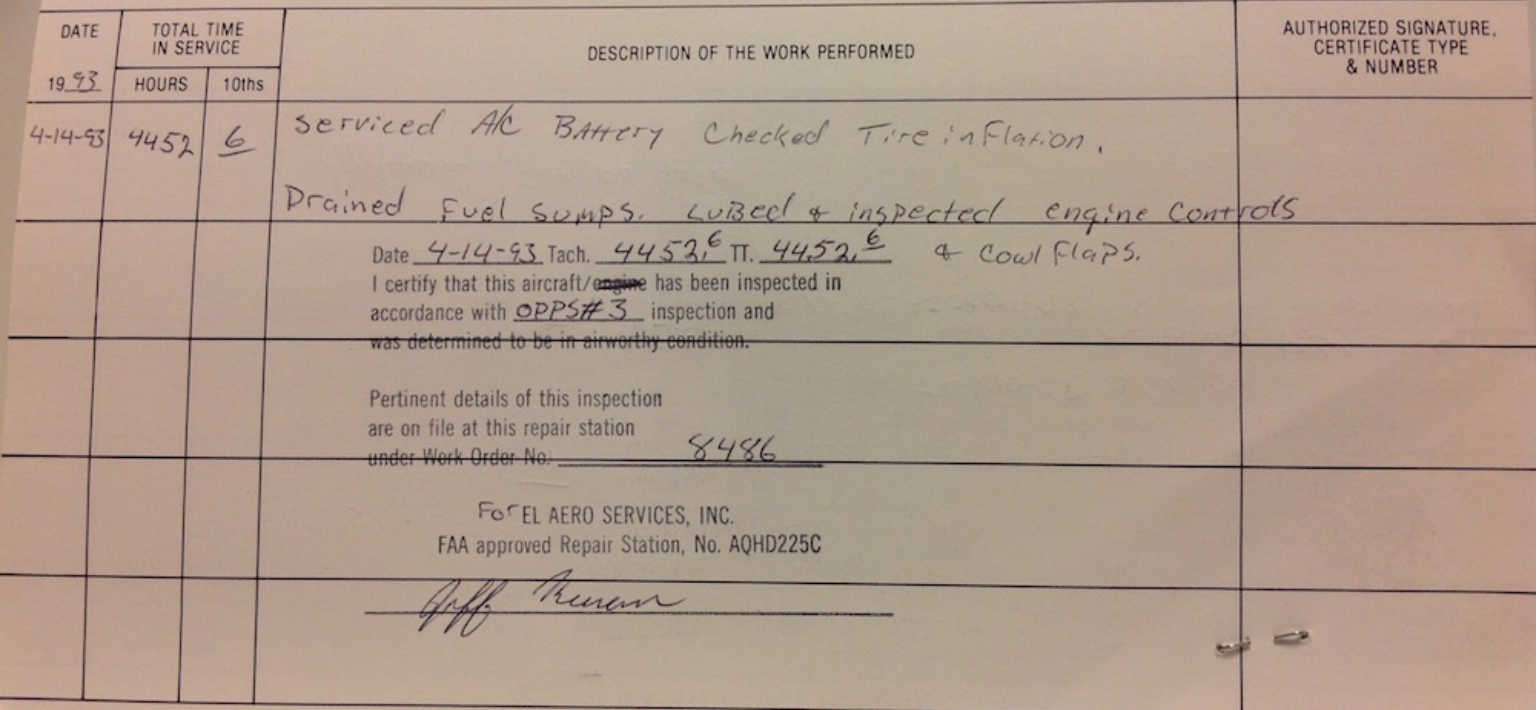 DATE
TOTAL TIME
IN SERVICE
DESCRIPTION OF THE WORK PERFORMED
AUTHORIZED SIGNATURE,
CERTIFICATE TYPE
& NUMBER
19 93
HOURS
10ths
4-14-93 4452 6 Serviced A/C Battery Checked Tire inflation.
Drained Fuel Sumps. Lubed & inspected engine Controls
Date 4-14-93 Tach. 4452.6 TT. 4452.6 & Cowl Flaps.
I certify that this aircraft/engine has been inspected in
accordance with OPPS#3 inspection and
was determined to be in airworthy condition.
Pertinent details of this inspection
are on file at this repair station
under Work Order No. 8486
For EL AERO SERVICES, INC.
FAA approved Repair Station, No. AQHD225C
Jeff